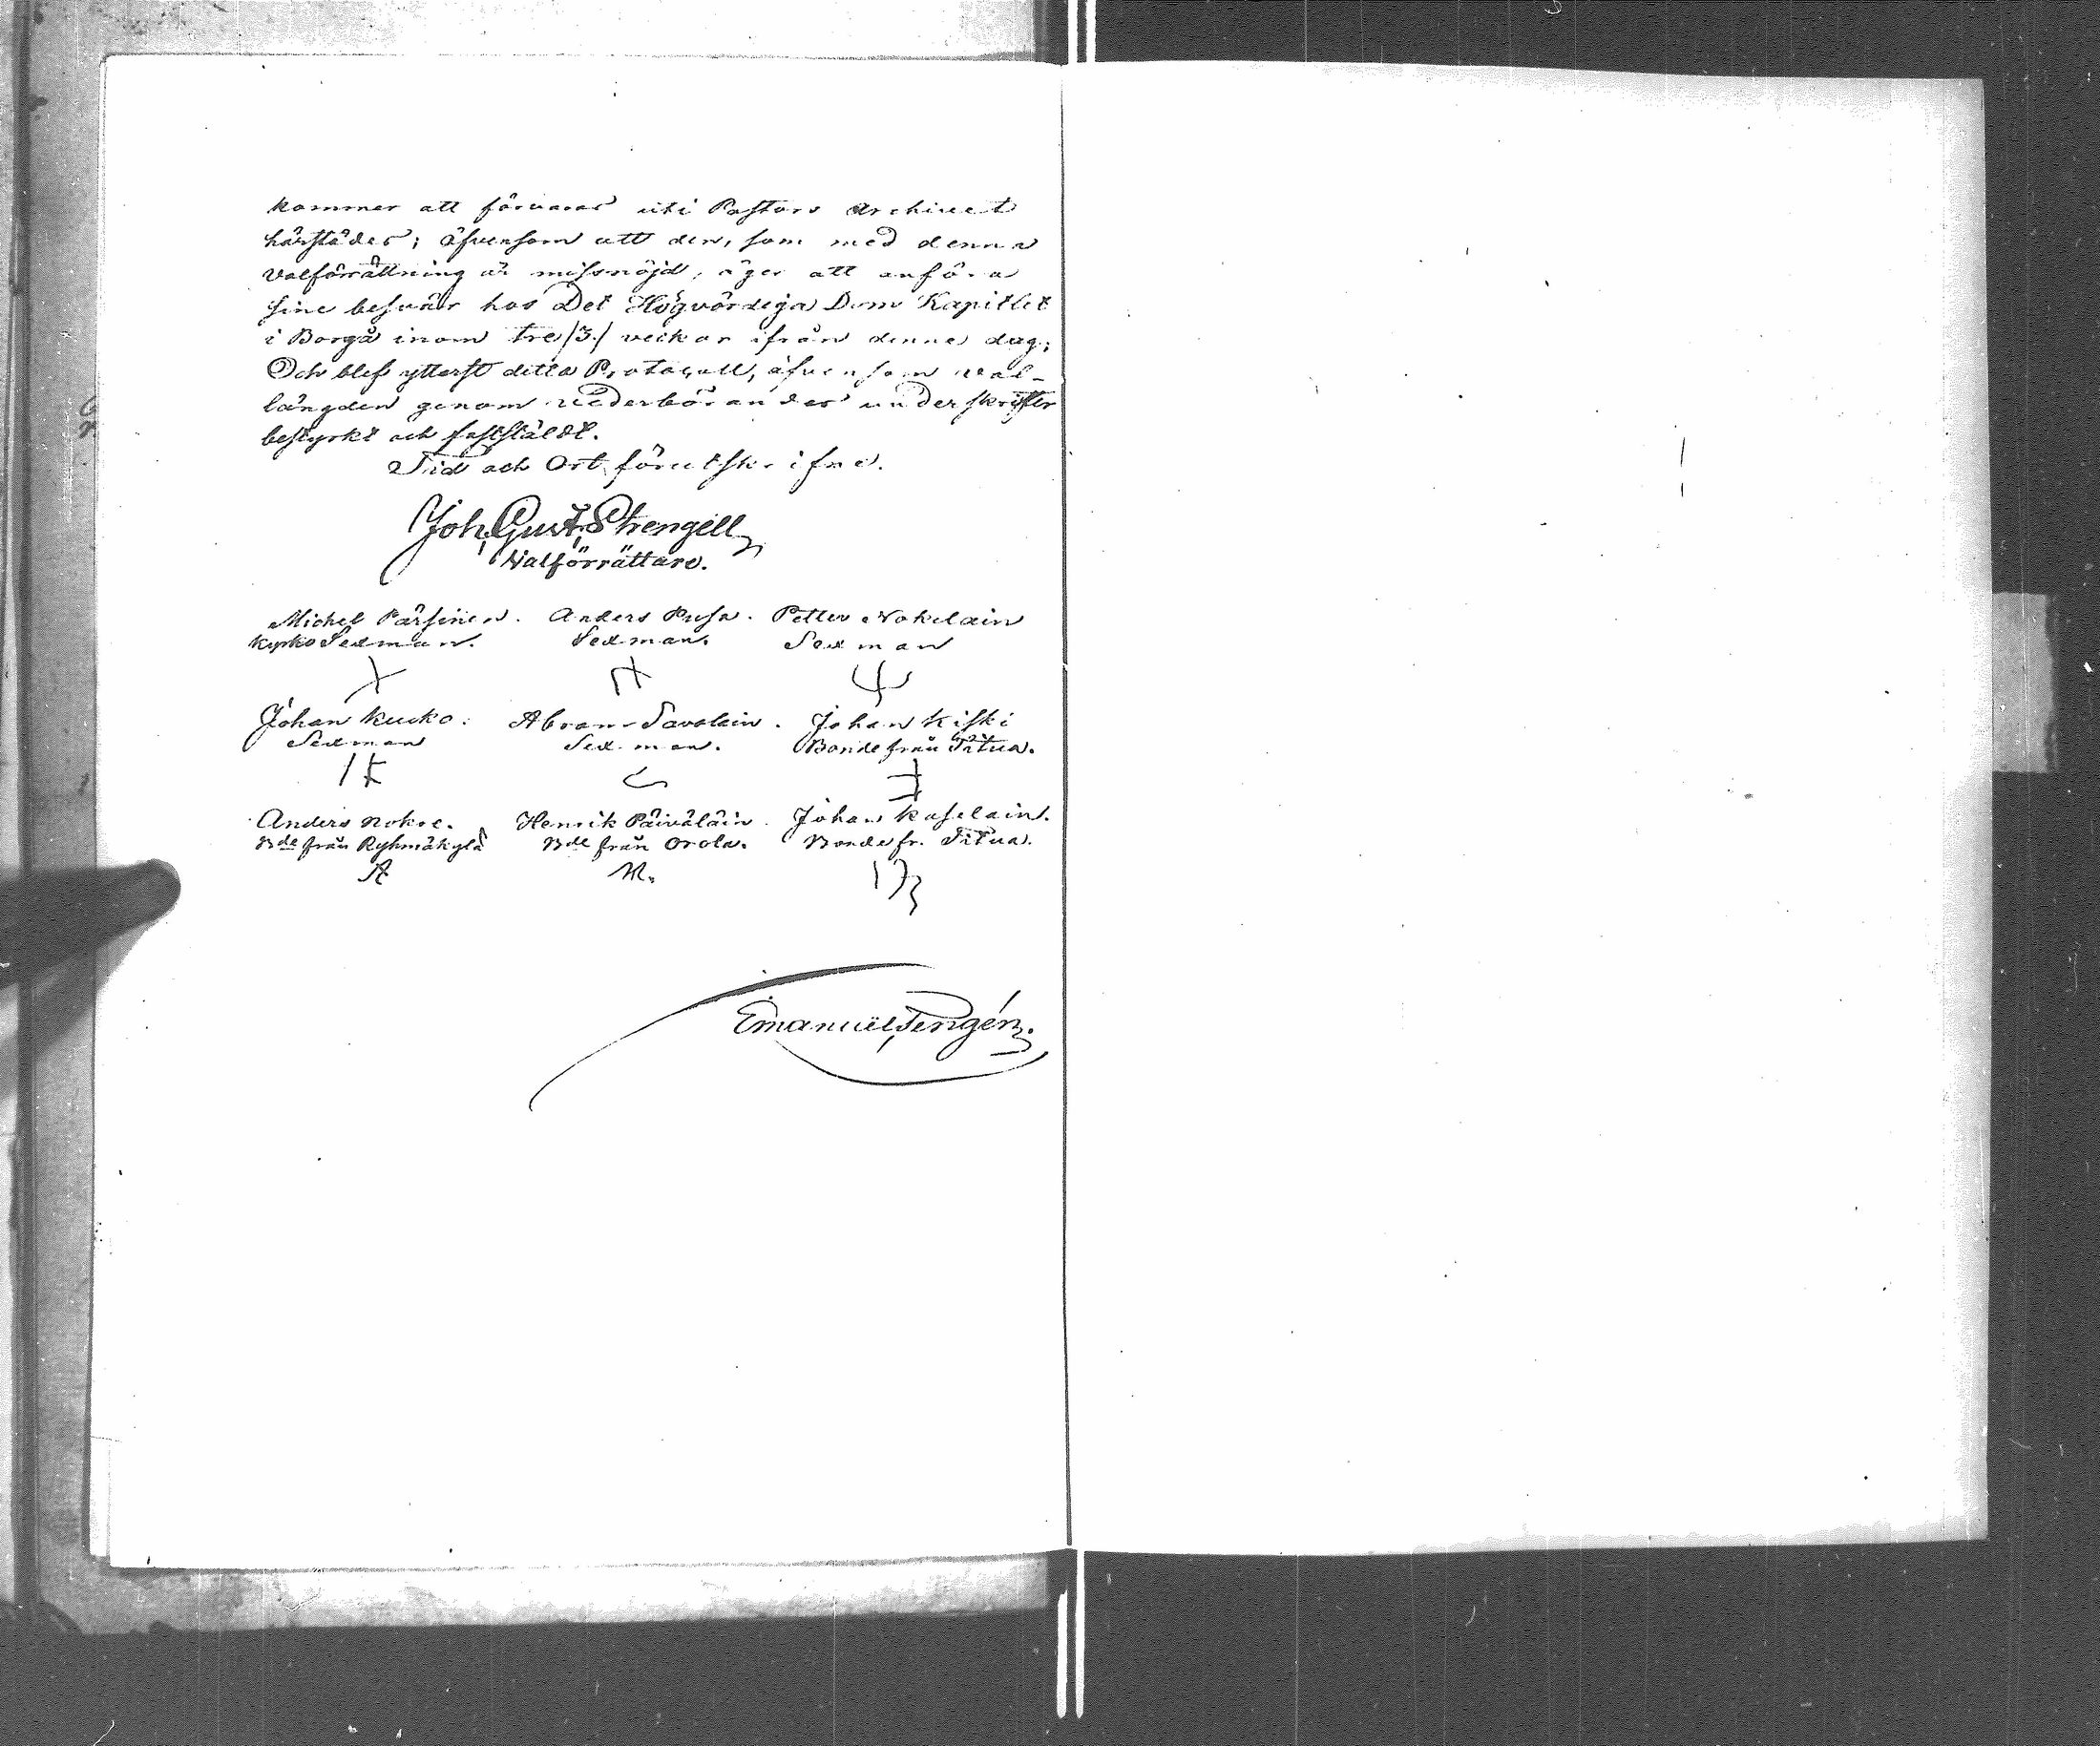 kommer att förvaras uti Pastors Archivet
härstädes; äfvensom att den, som med denna
Valförrättning är missnöjd, äger att anföra
sine besvär hos Det Högvördiga Dom Kapitlet
i Borgå inom tre /3./ veckor ifrån denne dag;
Och blef ytterst detta Protocoll, äfvensom val-
längden genom vederbörandes underskrifter
bestyrkt och fastställdt.
Tid och Ort förutskrifne.
Joh. Gust. Strengell
Valförrättare.
Michel Pärsinen. Anders Pusa. Petter Nokelain
Kyrko Sexman. Sexman. Sexman
Johan Kucko. Abram Savolain. Johan Kiski
Sexman Sexman. Bonde från Titua.
Anders Nokoe. Henrik Päiväläin. Johan Kaselain.
Bde från Ryhmäkylä Bde från Orola. Bonde fr. Titua.
Emanuel Tengén.